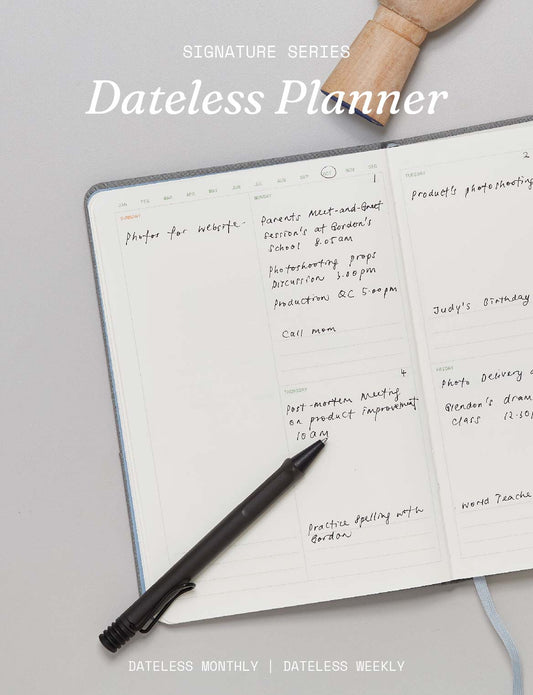 SIGNATURE SERIES
Dateless Planner
JAN FEB MAR APR MAY JUN JUL AUG SEP OCT NOV DEC
SUNDAY
Photos for website-
MONDAY
1
Parents Meet-and-Greet
session's at Gordon's
school 8.05am
Photoshooting props
Discussion 3.00pm
Production QC 5.00pm
Call mom
TUESDAY
2
Product's photoshooting
Judy's Birthday
THURSDAY
4
Post-mortem Meeting
on product improvement
10am
Practice spelling with
Gordon
FRIDAY
Photo Delivery
Glendon's dram
class 12.30p
World Teache
DATELESS MONTHLY | DATELESS WEEKLY